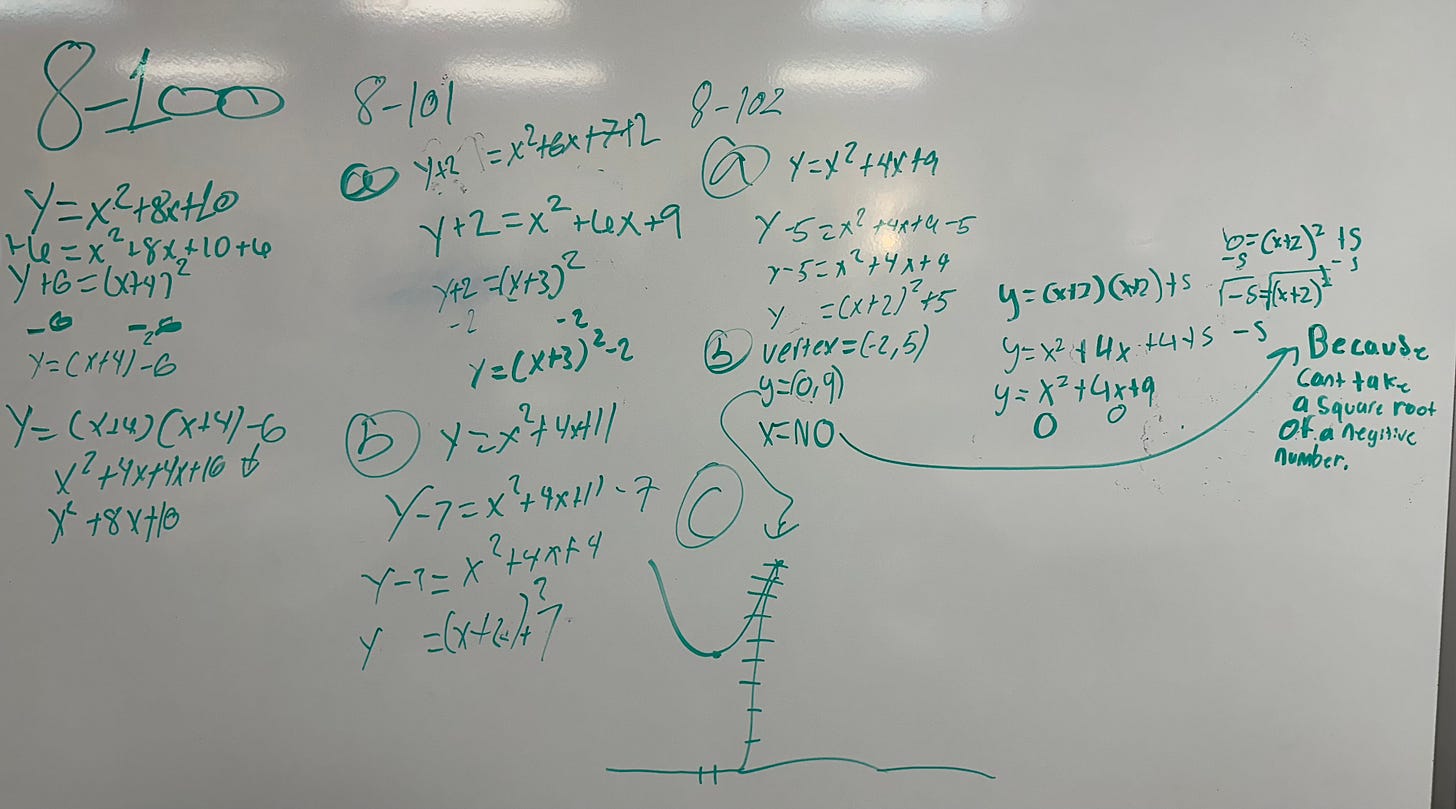 8-100
y=x²+8x+10
+6=x²+8x+10+6
y+6=(x+4)²
-6 -6
y=(x+4)²-6
y=(x+4)(x+4)-6
x²+4x+4x+16-6
x²+8x+10
8-101
a y+2 =x²+6x+7+2
y+2=x²+6x+9
y+2=(x+3)²
-2 -2
y=(x+3)²-2
b y=x²+4x+11
y-7=x²+4x+11-7
y-7=x²+4x+4
y =(x+2)²+7
8-102
a y=x²+4x+9
y-5=x²+4x+9-5
y-5=x²+4x+4
y =(x+2)²+5
b vertex=(-2,5)
y=(0,9)
x=NO
y=(x+2)(x+2)+5
y=x²+4x+4+5
y=x²+4x+9
0 0
0=(x+2)²+5
-5 -5
√-5=√(x+2)²
-5
Because
cant take
a square root
of a negitive
number.
C